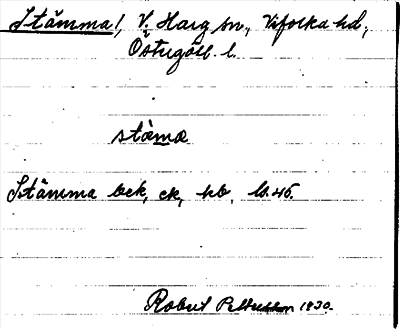 Stämma/, V. Harg sn, Vifolka hd,
Östergötl. l.
stämæ
Stämma bek, ek, hb, ls. 46.
Robert Pettersson 1930.